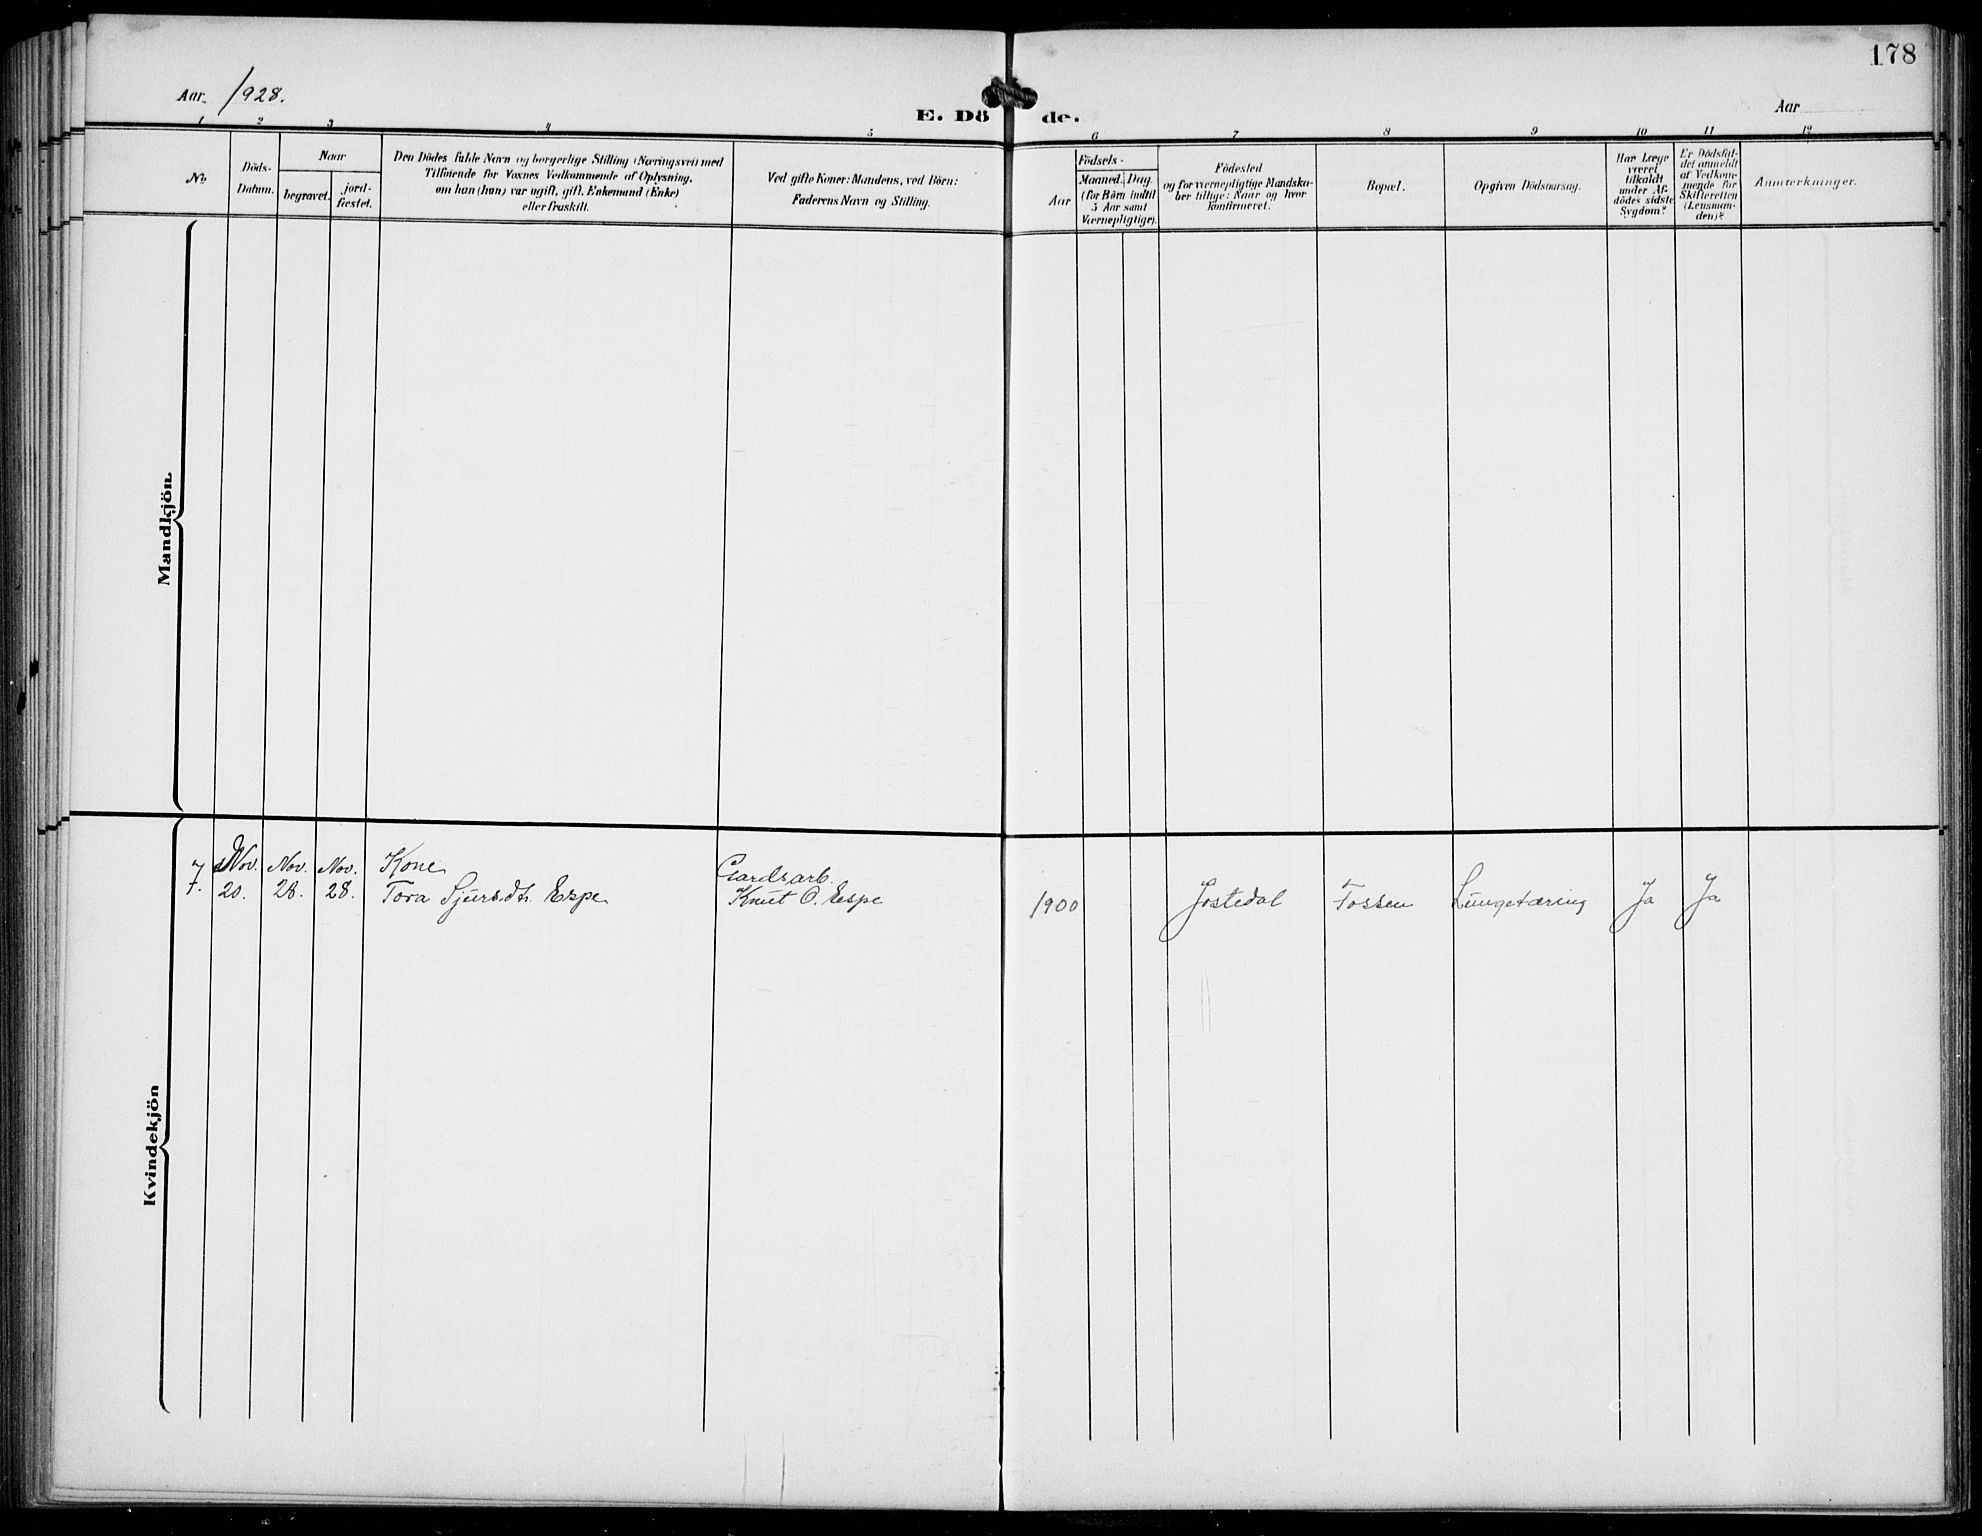 178
Aar 1928.
E. Dö de.
Aar
1 2 3 4 5 6 7 8 9 10 11 12
No
Döds-
Datum.
Naar
begravet.
jord-
fæstet.
Den Dödes fulde Navn og borgerlige Stilling (Næringsvei) med
Tilföiende for Voxnes Vedkommende af Oplysning,
om han (hun) var ugift, gift, Enkemand (Enke)
eller fraskilt.
Ved gifte Koner: Mandens, ved Börn:
Faderens Navn og Stilling.
Födsels-
Aar
Maaned. Dag.
(for Börn indtil
5 Aar samt
Værnepligtige).
Födested
og for værnepligtige Mandska-
ber tillige: Naar og hvor
konfirmeret.
Bopæl.
Opgiven Dödsaarsag.
Har Læge
været
tilkaldt
under Af-
dödes sidste
Sygdom?
Er Dödsfal-
det anmeldt
af Vedkom-
mende for
Skifteretten
(Lensman-
den)?
Anmærkninger.
Mandkjön.
Kvindekjön
Nov. Nov. Nov. Kone Gardsarb.
7. 20. 28. 28. Tora Sjursdtr. Espe Knut O. Espe 1900 Jostedal Fossen Lungetæring Ja Ja